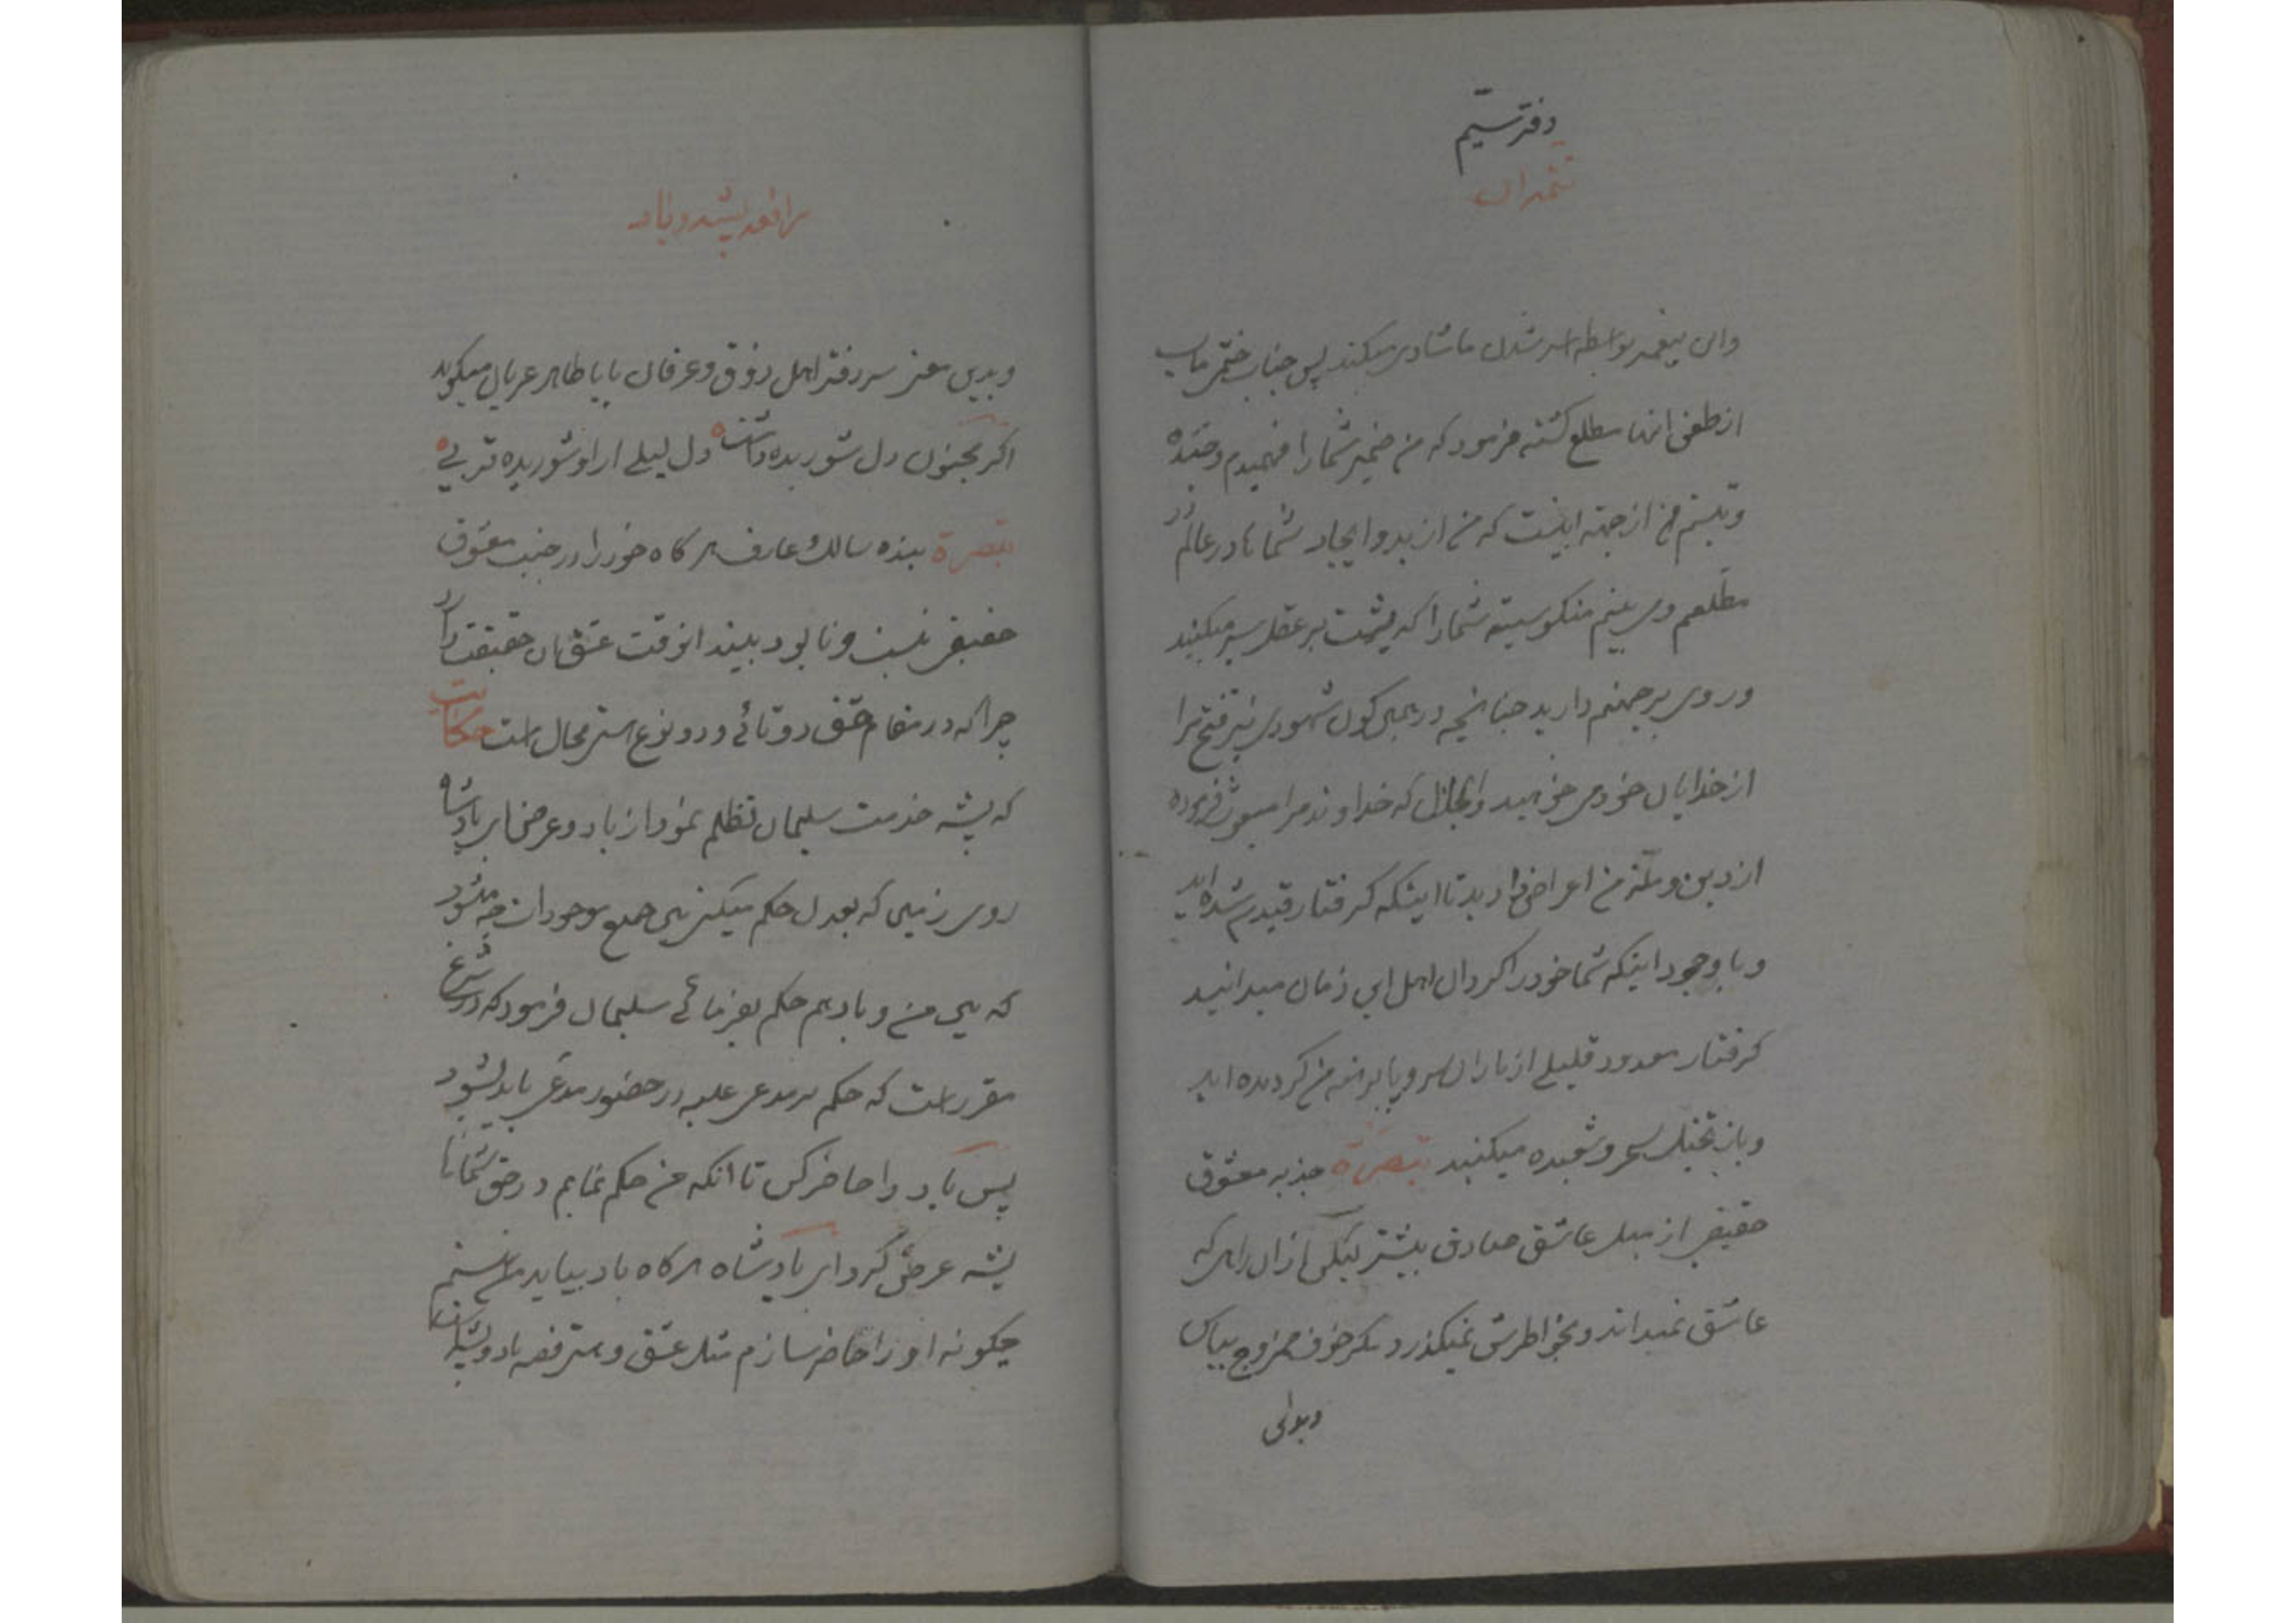 دفتر سیم
وان پیغمبر بواسطه اسر شدن ما شادی میکند پس جناب ختمی ماب
از طعن انها مطلع کشته فرمود که من ضمیر شما را فهمیدم و خنده
و تبسم من از جهته اینست که من از بدو ایجاد شماها در عالم ذر
مطلعم و می بینم منکوسیته شما را که پشت بر عقل سیر میکنید
و روی بر جهنم دارید چنانچه در همین کون شهودی نیز فتح مرا
از خدایان خود می خواهید و الحال که خداوند مرا مبعوث فرموده
از دین و ملته من اعراض دارید تا اینکه کرفتار قیدم شده اید
و با وجود اینکه شما خود را کردان اهل این زمان میدانید
کرفتار معدود قلیلی از یاران سر و پا برهنه من کردیده اید
و باز تخیل سحر و شعبده میکنید تبصرة جذبه معشوق
حقیقی از میل عاشق صادق بیشتر لیکن از ان راهی که
عاشق نمیداند و بخواطرش نمیکذرد مکر خوف ممزوج بیاس
وبدین
را نفور پشه و باد
وبدین معنی سر دفتر اهل ذوق و عرفان بابا طاهر عریان میکوید
اکر مجنون دل شوریده داشت دل لیلی از او شوریده تر بی
تبصرة بنده سالک عارف هر کاه خود را در جنب معشوق
حقیقی نیست و نابود بیند انوقت عشق ان حقیقت دارد
چرا که در مقام عشق دوتائی و دو نوع است محال است حکایت
که پشه خدمت سلیمان تظلم نمود از باد و عرض ای پادشاه
روی زمین که بعدل حکم میکنی بین جمیع موجودات چه میشود
که بین من و باد هم حکم بفرمائی سلیمان فرمود که در شرع
مقرر است که حکم بر مدعی علیه در حضور مدعی باید بشود
پس باد را حاضر کن تا انکه من حکم نمایم در حق شماها
پشه عرض کرد ای پادشاه هر کاه باد بیاید من نیستم
چکونه او را حاضر سازم مثل عشق و هستی قصه باد و پشه است